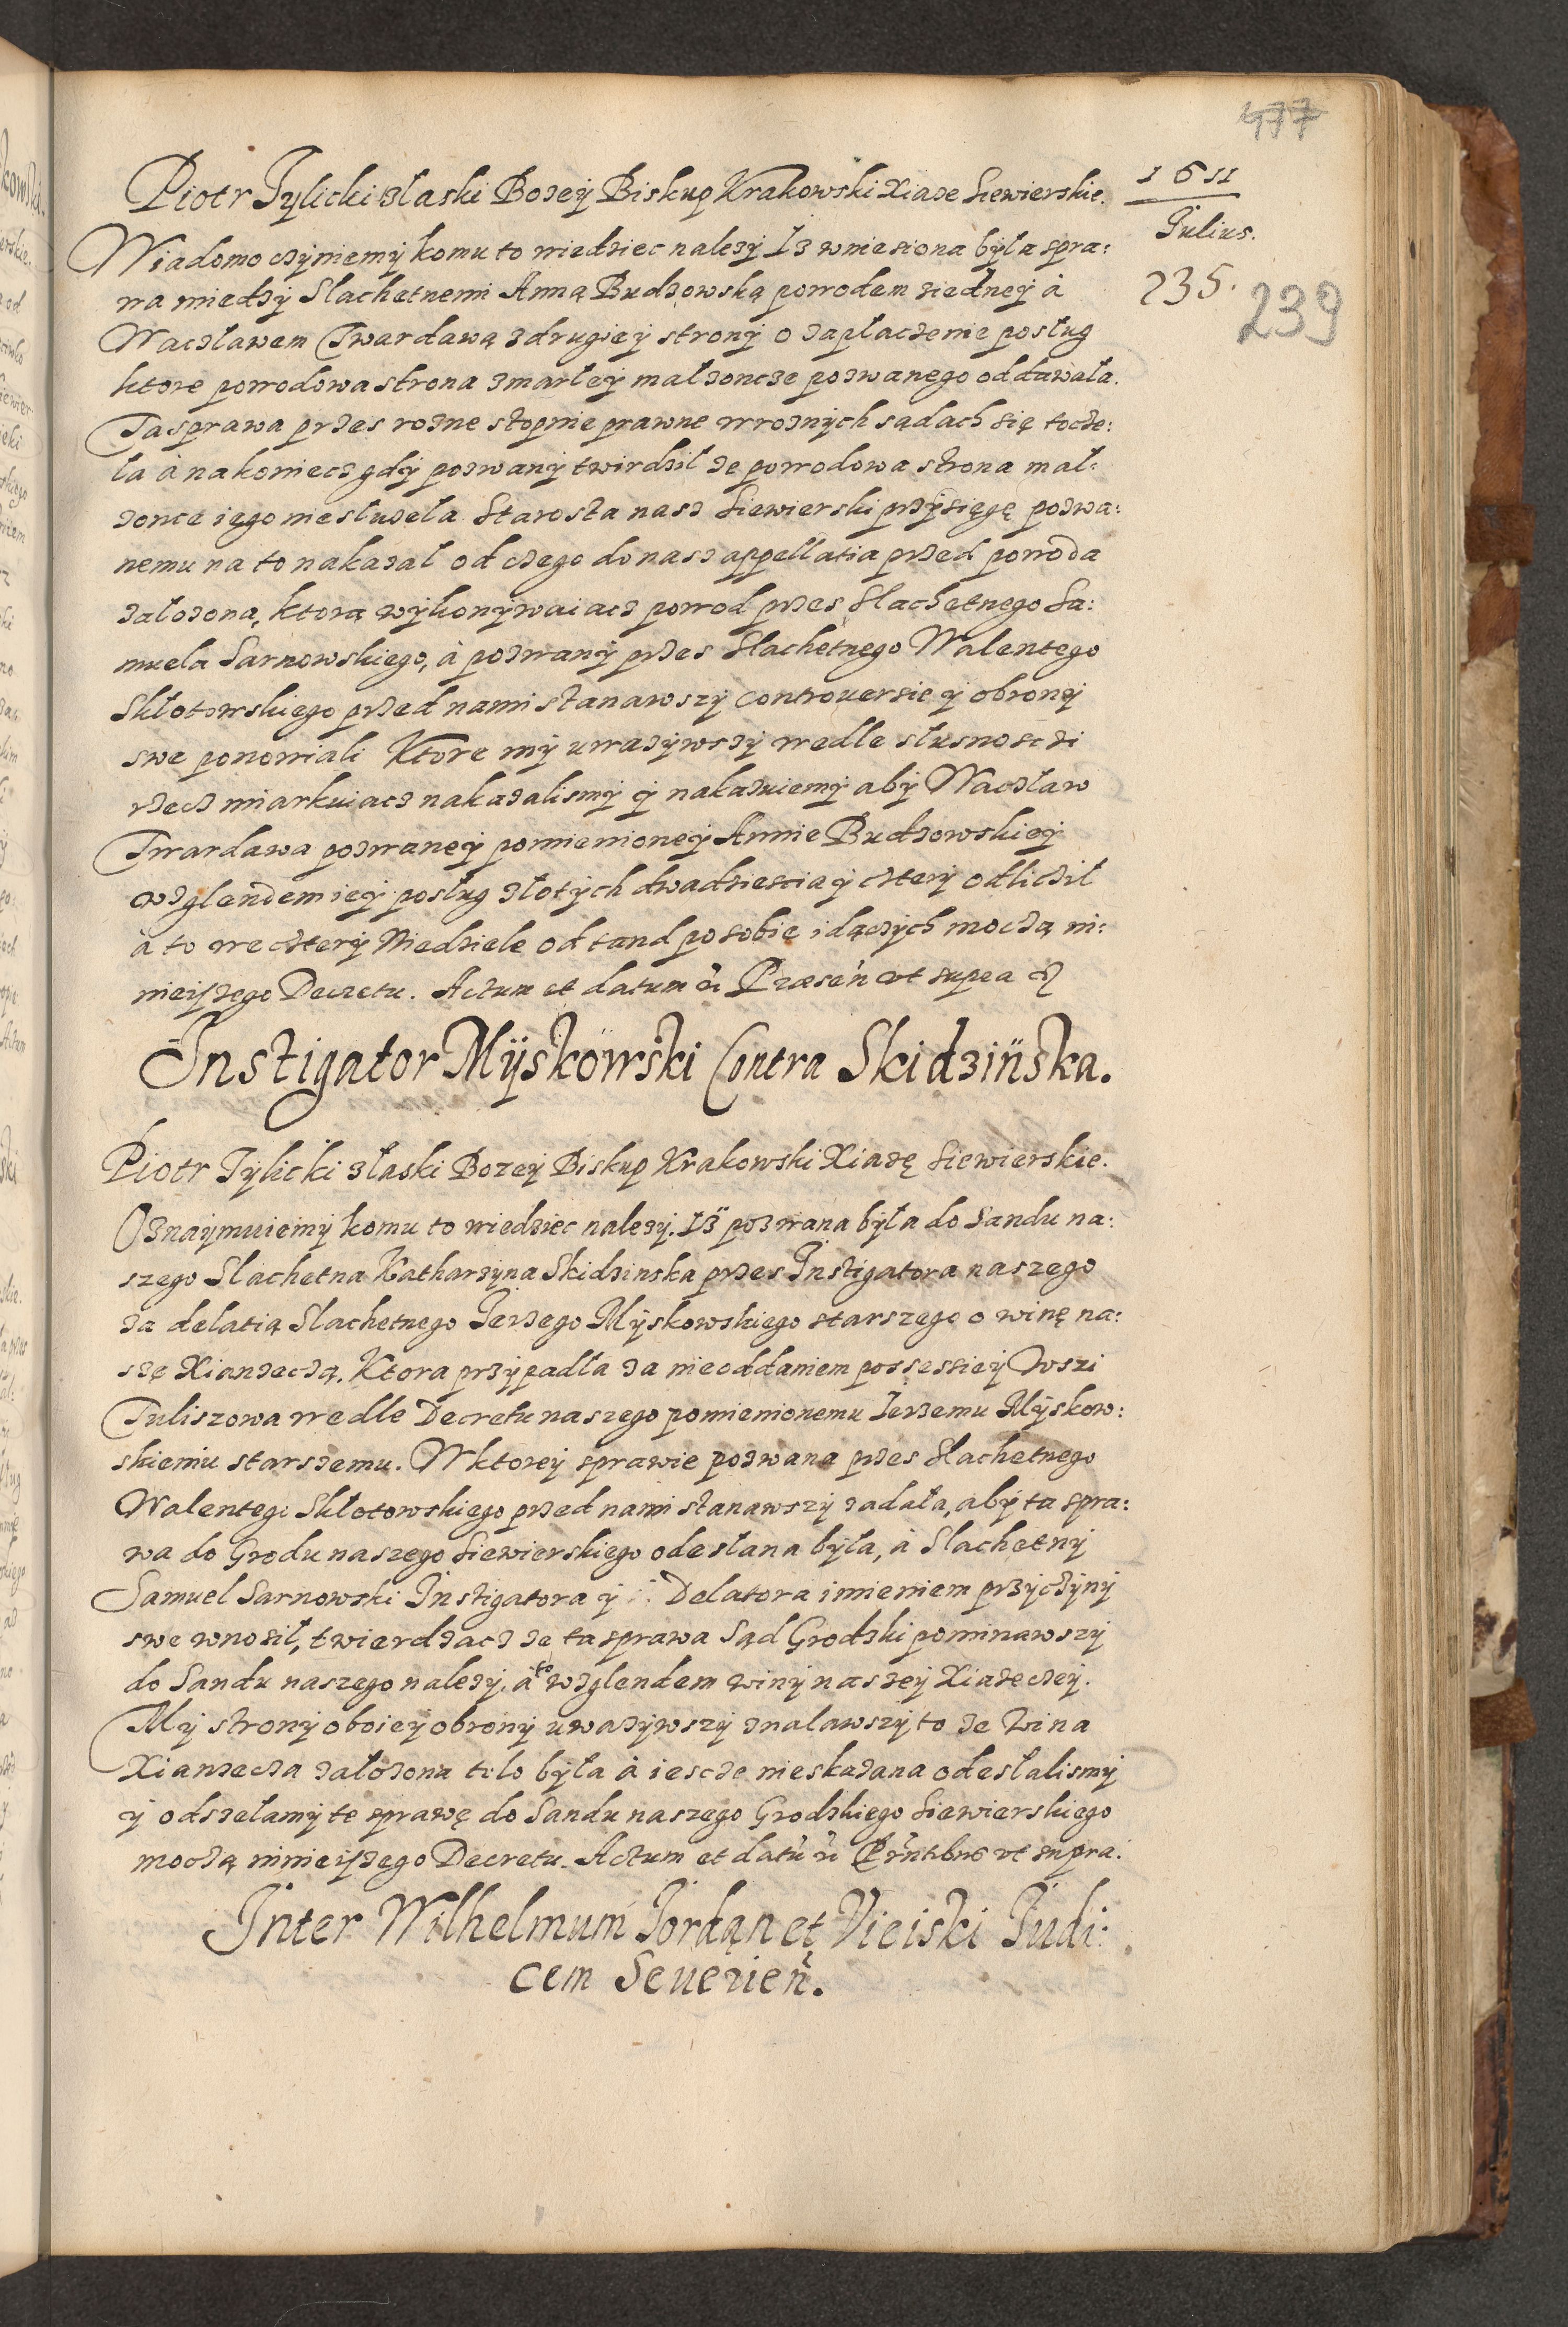 477
1611
Julius.
235. 239
Piotr Tylicki z łaski Bozey Biskup Krakowski Xiaze Siewierskie.
Wiadomo czyniemy komu to wiedziec nalezy Iz wniesiona była spra:
wa miedzy Slachetnemi Anną Budzowską powodem ziedney à
Waczławem Twardawą z drugiey strony o zapłaczenie posług
ktore powodowa strona zmarłey małzoncze pozwanego oddawała.
Ta sprawa przes rozne stopnie prawne w roznych sądach się tocze:
ła à nakoniecz gdy pozwany twirdził ze powodowa strona mał:
zonce iego nie słuzeła Starosta nasz Siewierski przysięgę pozwa:
nemu na to nakazał od czego do nasz appellatia przed powoda
załozona, ktorą wykonywaiacz powod przes Slachetnego Sa:
muela Sarnowskiego, à pozwany przes Slachetnego Walentego
Skłotowskiego przed nami stanawszy controuersie y obrony
swe ponowiali Ktore my uwazywszy wedle słusnosczi
rzecz miarkuiacz nakazalismy y nakazuiemy aby Waczław
Twardawa pozwaney pomienioney Annie Budzowskiey
wzglendem iey posług złotych dwadziescia y cztery odlicził
à to we cztery Niedziele od tand po sobie idączych moczą ni:
nieyszego Decretu. Actum et datum ut Præsen ut supra
Instigator Myskowski Contra Skidzinska.
Piotr Tylicki z łaski Bozey Biskup Krakowski Xiazę Siewierskie.
Oznaymuiemy komu to wiedziec nalezy. Iz pozwana była do Sandu na:
szego Slachetna Katharzyna Skidzinska przes Instigatora naszego
za delatią Slachetnego Jerzego Myskowskiego starszego o winę na:
szę Xianzeczą. Ktora przypadła za nieoddaniem possessiey Wszi
Tuliszowa wedle Decretu naszego pomienionemu Jerzemu Myskow:
skiemu starszemu. W ktorey sprawie pozwana przes Slachetnego
Walentego Skłotowskiego przed nami stanawszy zadała, aby ta spra:
wa do Grodu naszego Siewierskiego odesłana była, à Slachetny
Samuel Sarnowski Instigatora y Delatora imieniem przyczyny
swe wnosił, twierdzacz ze ta sprawa Sąd Grodzki pominawszy
do Sandu naszego nalezy, à to wzglendem winy naszey Xiazeczey.
My strony oboiey obrony uwazywszy znalawszy to ze Wina
Xianzecza załozona tilo była à iescze nieskazana odesłalismy
y odszełamy te sprawę do Sandu naszego Grodzkiego Siewierskiego
moczą ninieyszego Decretu. Actum et datu ut Præntibus ut supra.
Inter Wilhelmum Jordan et Vieiski Judi:
cem Seuerien.